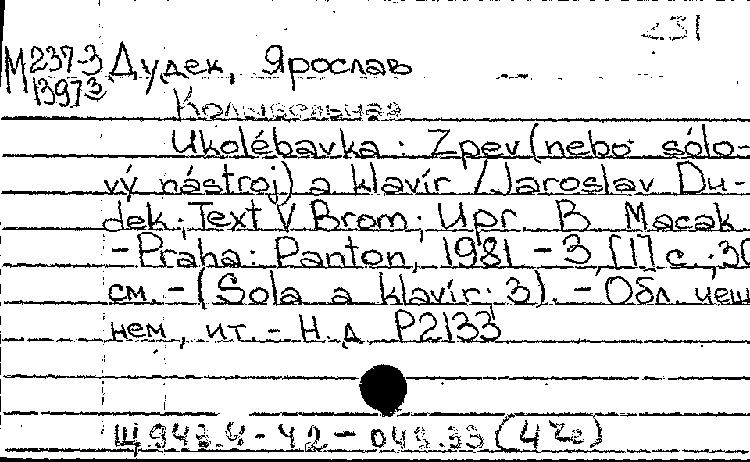 231
М237-3 Дудек, Ярослав
13973
Колыбельная
Ukolébavka: Zpev (nebo sólo-
vý nástroj) a klavír / Jaroslav Du-
dek; Text V Brom; Upr. B Macak
- Praha: Panton, 1981 - 3, [1] с.; 30
см. - (Sola a klavír; 3). - Обл. чеш
нем, ит. - Н. д. P2133
Щ943.4-42-043.33 (4Че)